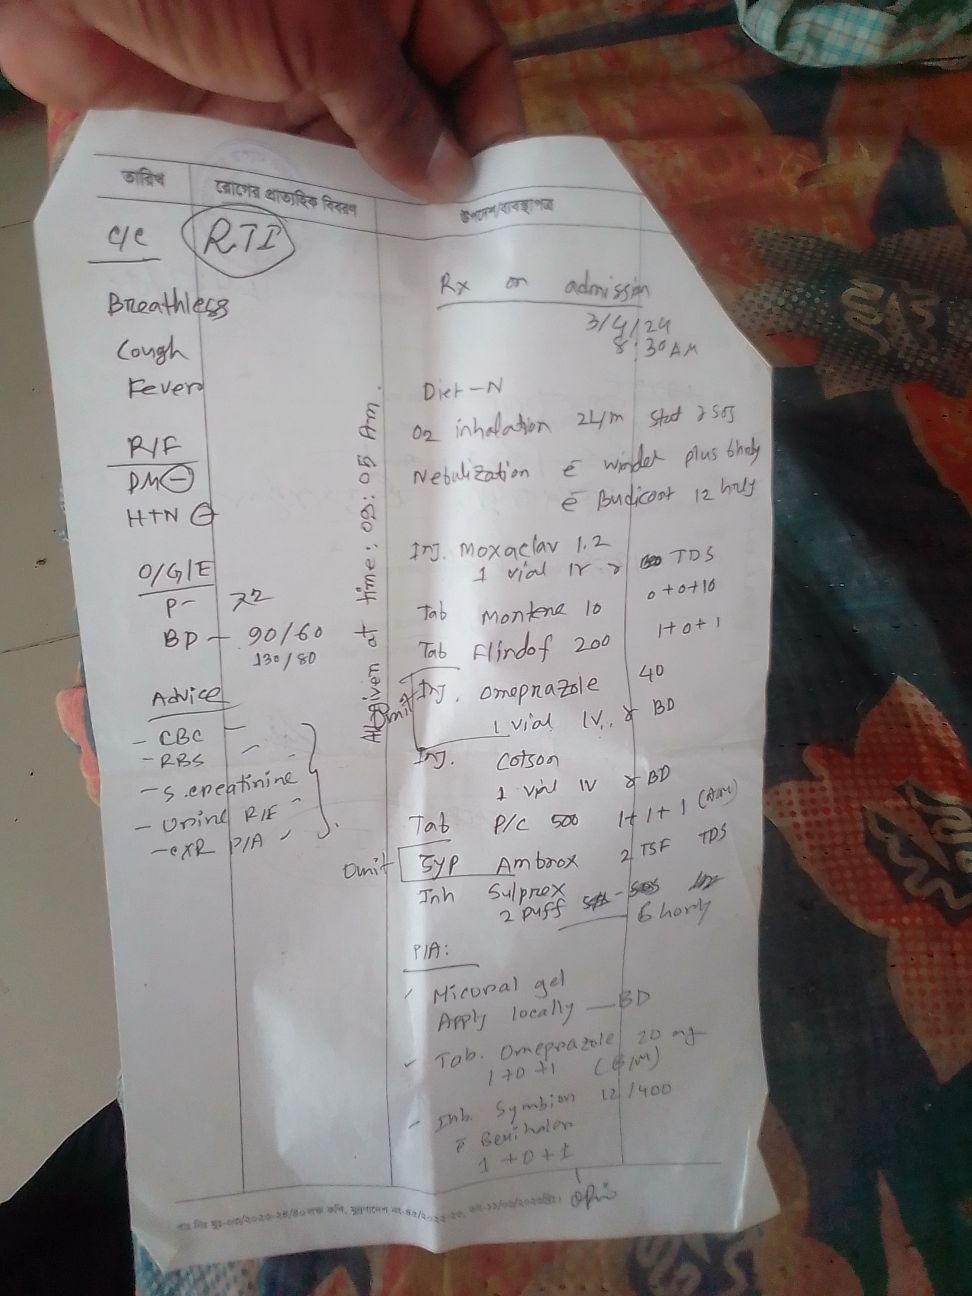 তারিখ
রোগের ধারাবাহিক বিবরণ
উপদেশ/ব্যবস্থাপত্র
C/C
RTI
Breathless
Cough
Fever
R/F
DM ⊖
HTN ⊖
O/G/E
P- 72
BP - 90/60
130/80
Advice
- CBC
- RBS
- S. creatinine
- Urine R/E
- CXR P/A
All given at time: 09:05 Am.
Rx on admission
3/4/24
8:30 AM
Diet - N
O2 inhalation 2L/m stat & SOS
Nebulization c̄ windel plus 6hrly
c̄ Budicort 12 hrly
Inj. Moxaclav 1.2
1 vial IV TDS
Tab Montene 10 0+0+10
Tab Flindof 200 1+0+1
Omit
Inj. Omeprazole 40
1 vial IV. BD
Inj. Cotson
1 vial IV BD
Tab P/C 500 1+1+1 (A/M)
Omit Syp Ambrox 2 TSF TDS
Inh Sulprex
2 puff 6 horly
P/A:
Miconal gel
Apply locally — BD
Tab. Omeprazole 20 mg
1+0+1 (B/M)
Inh. Symbion 12/400
c̄ Bexihaler
1+0+1